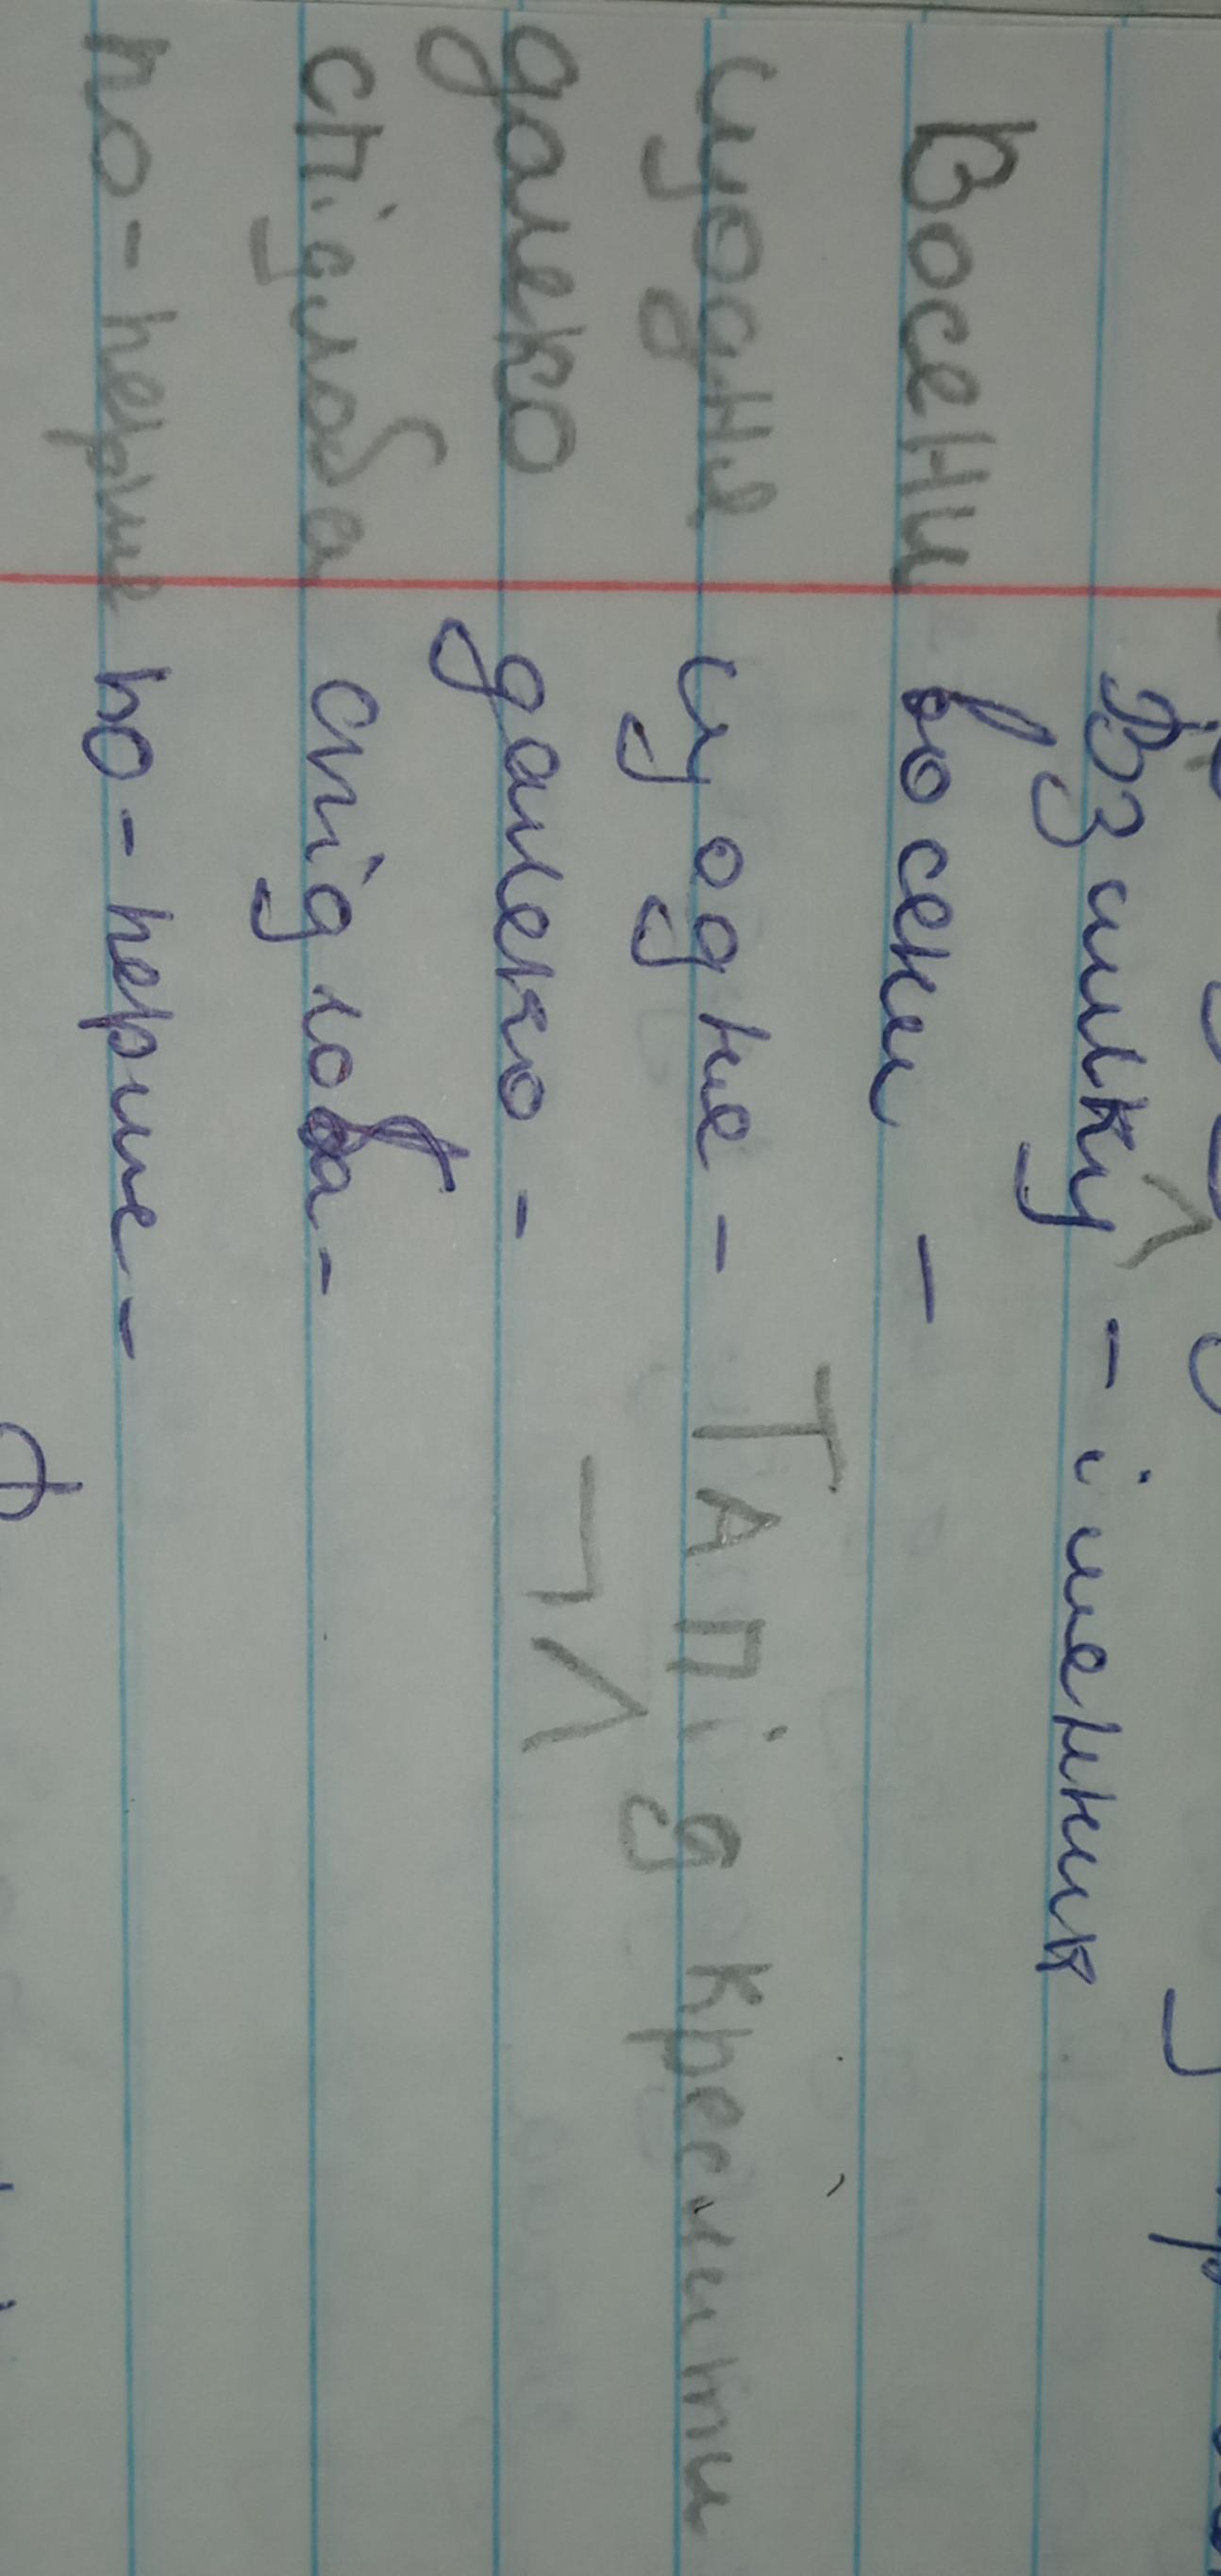 Взимку - іменник
Восени восени -
щодня щодне - Та підкреслити
далеко далеко - ¬ ^
спідлоба спідлоба -
по-перше по-перше -